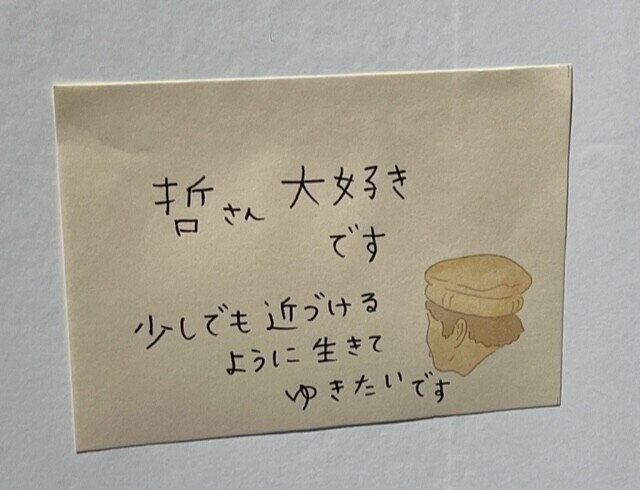 哲さん 大好き
です
少しでも近づける
ように生きて
ゆきたいです